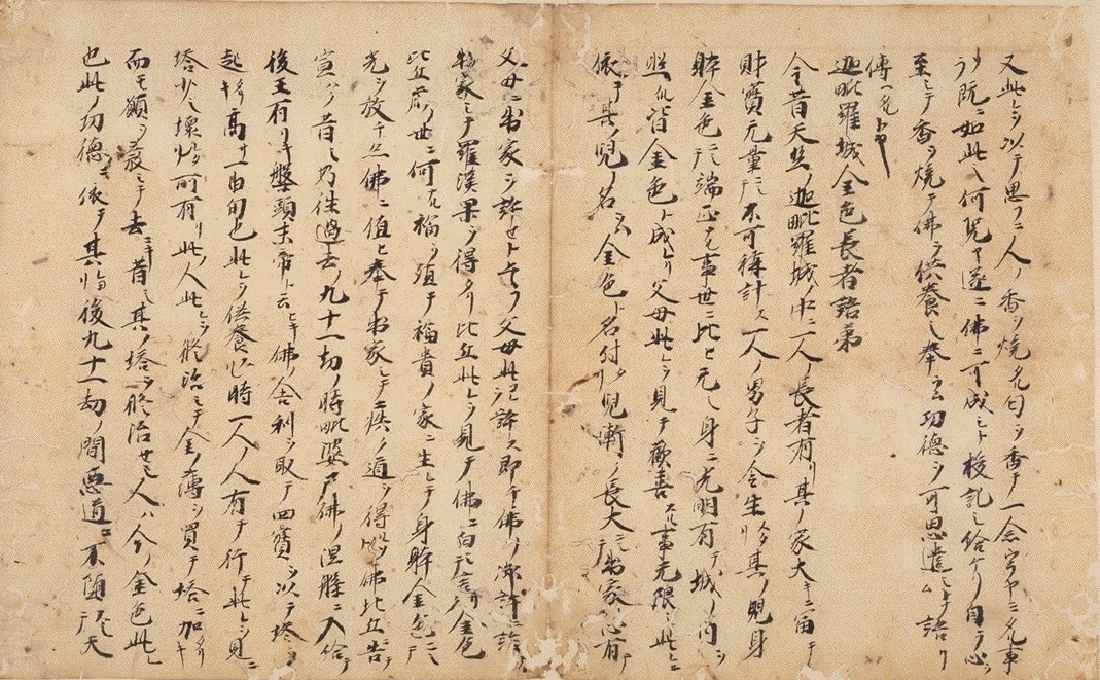 又此レヲ以テ思フニ人ノ香ヲ焼ク匂ヲ香テ一念
既ニ如此ハ何况ヤ遂ニ佛ニ可成シト授記シ給ケリ自ラ心ヲ
至シテ香ヲ焼テ佛ヲ供養シ奉ラム功德ヲ可思遣シトナム語リ
傳ヘタルトヤ
迦毗羅城金色長者語第
今昔天竺ノ迦毗羅城ノ中ニ一人ノ長者有リ其ノ家大キニ富テ
財寶无量ニシテ不可稱計ス一人ノ男子ヲ令生メタリ其ノ児身
躰金色ニシテ端正ナル事世ニ比ヒ无シ身ニ光明有テ城ノ内ヲ
照スニ皆金色ト成レリ父母此レヲ見テ歡喜スル事无限シ此レニ
依テ其ノ児ノ名ヲハ金色ト名付タリ児漸ク長大シテ出家ノ心有テ
父母ニ出家ヲ許セト乞フ父母此レヲ許ス即チ佛ノ御許ニ詣テ
出家シテ羅漢果ヲ得タリ比丘此レヲ見テ佛ニ白シテ言ク金色
比丘前ノ世ニ何ナル福ヲ殖テ福貴ノ家ニ生レテ身躰金色ニシテ
光ヲ放チ亦佛ニ值ヒ奉テ出家シテ疾ク道ヲ得ルソ佛比丘ニ告テ
宣ハク昔シ乃往過去ノ九十一劫ノ時毗婆尸佛ノ涅槃ニ入給テ
後王有リキ盤頭末帝ト云ヒキ佛ノ舍利ヲ取テ四寶ヲ以テ塔ヲ
起タリキ高サ一由旬也此レヲ供養シ時一人ノ人有テ行テ此レヲ見ニ
塔少シ壞タル所有リ此ノ人此レヲ修治シテ金ノ薄ヲ買テ塔ニ加タリキ
而モ願ヲ發シテ去ニキ昔シ其ノ塔ヲ修治セシ人ハ今ノ金色此レ
也此ノ功德ニ依テ其ヨリ後九十一劫ノ間惡道ニ不墮シテ天